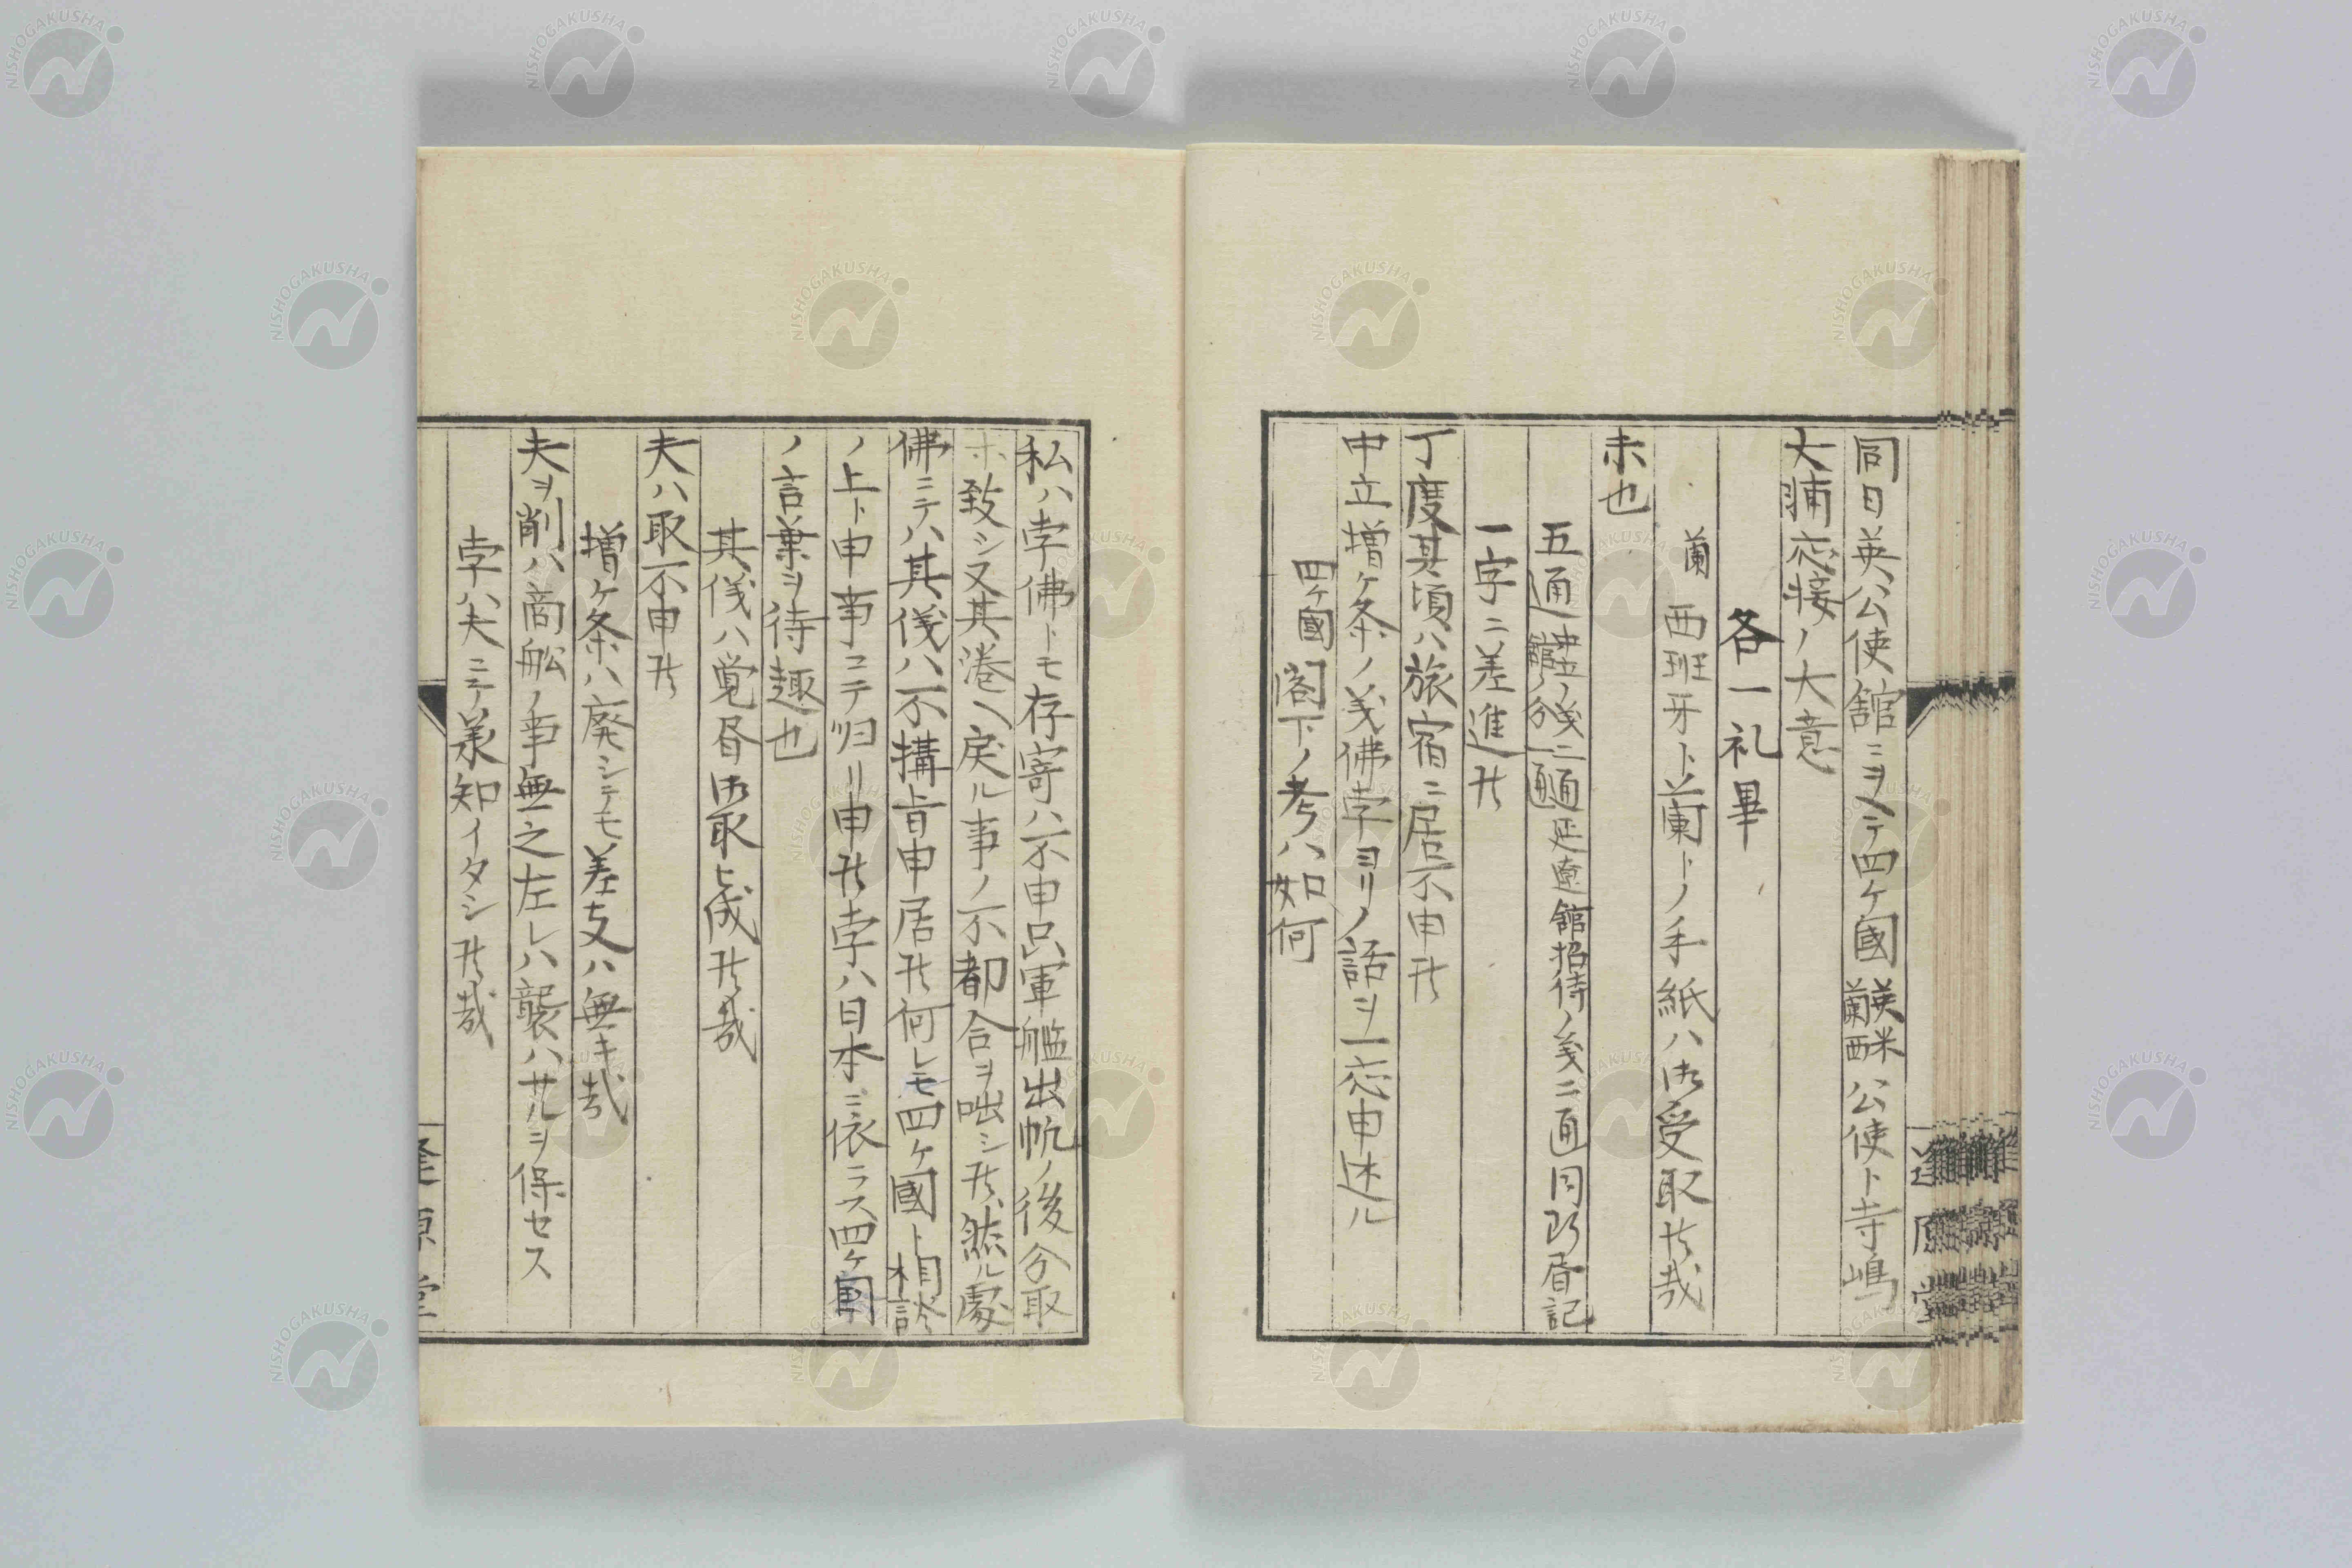 同日英公使館ニヲヘテ四ケ國英米蘭西公使ト寺嶋
大輔応接ノ大意
各一礼畢
蘭 西班牙ト蘭トノ手紙ハ御受取候哉
未也
五通 中立ノ義二通 延遼館招待ノ義二通同所昼記
一字ニ差進候
丁度其頃ハ旅宿ニ居不申候
中立増ケ条ノ義佛孛ヨリノ話ヲ一応申述ル
四ケ國 閣下ノ考ハ如何
私ハ孛佛トモ存寄ハ不申只軍艦出帆ノ後分取
致シ又其港ヘ戻ル事ノ不都合ヲ咄シ候然ル處
佛ニテハ其儀ハ不構旨申居候何レモ四ケ國ト相談
ノ上ト申事ニテ归リ申候孛ハ日本ニ依ラス四ケ國
ノ言葉ヲ待趣也
其儀ハ覚昏御取上成候哉
夫ハ取不申候
増ケ条ハ廃シテモ差支ハ無キ哉
夫ヲ削ハ商舩ノ事無之左レハ襲ハサルヲ保セス
孛ハ夫ニテ承知イタシ候哉